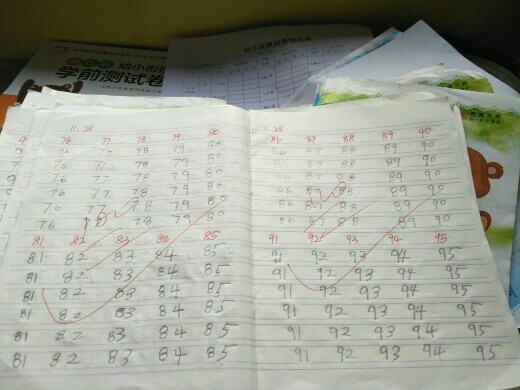 幼小衔接
学前测试卷
11.28
76 77 78 79 80
76 77 78 79 80
76 77 78 79 80
76 77 78 79 80
76 77 78 79 80
76 77 78 79 80
76 78 79 80
81 82 83 84 85
81 82 83 84 85
82 83 84 85
81 82 83 84 85
81 82 83 84 85
81 82 83 84 85
81 82 83 84 85
11.28
86 87 88 89 90
86 87 88 89 90
86 87 88 89 90
86 87 88 89 90
86 88 89 90
86 87 88 89 90
91 92 93 94 95
91 92 93 94 95
91 92 93 94 95
91 92 93 94 95
91 92 93 94 95
91 92 93 94 95
91 92 93 94 95